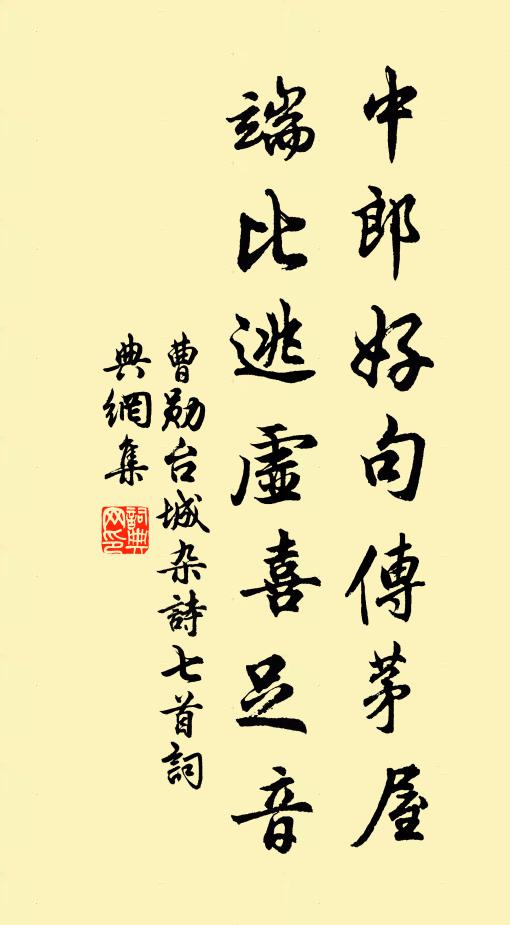 中郎好句傳茅屋
端比逃虛喜足音
曹勛台城杂詩七首詞
典網集
詞典
网印